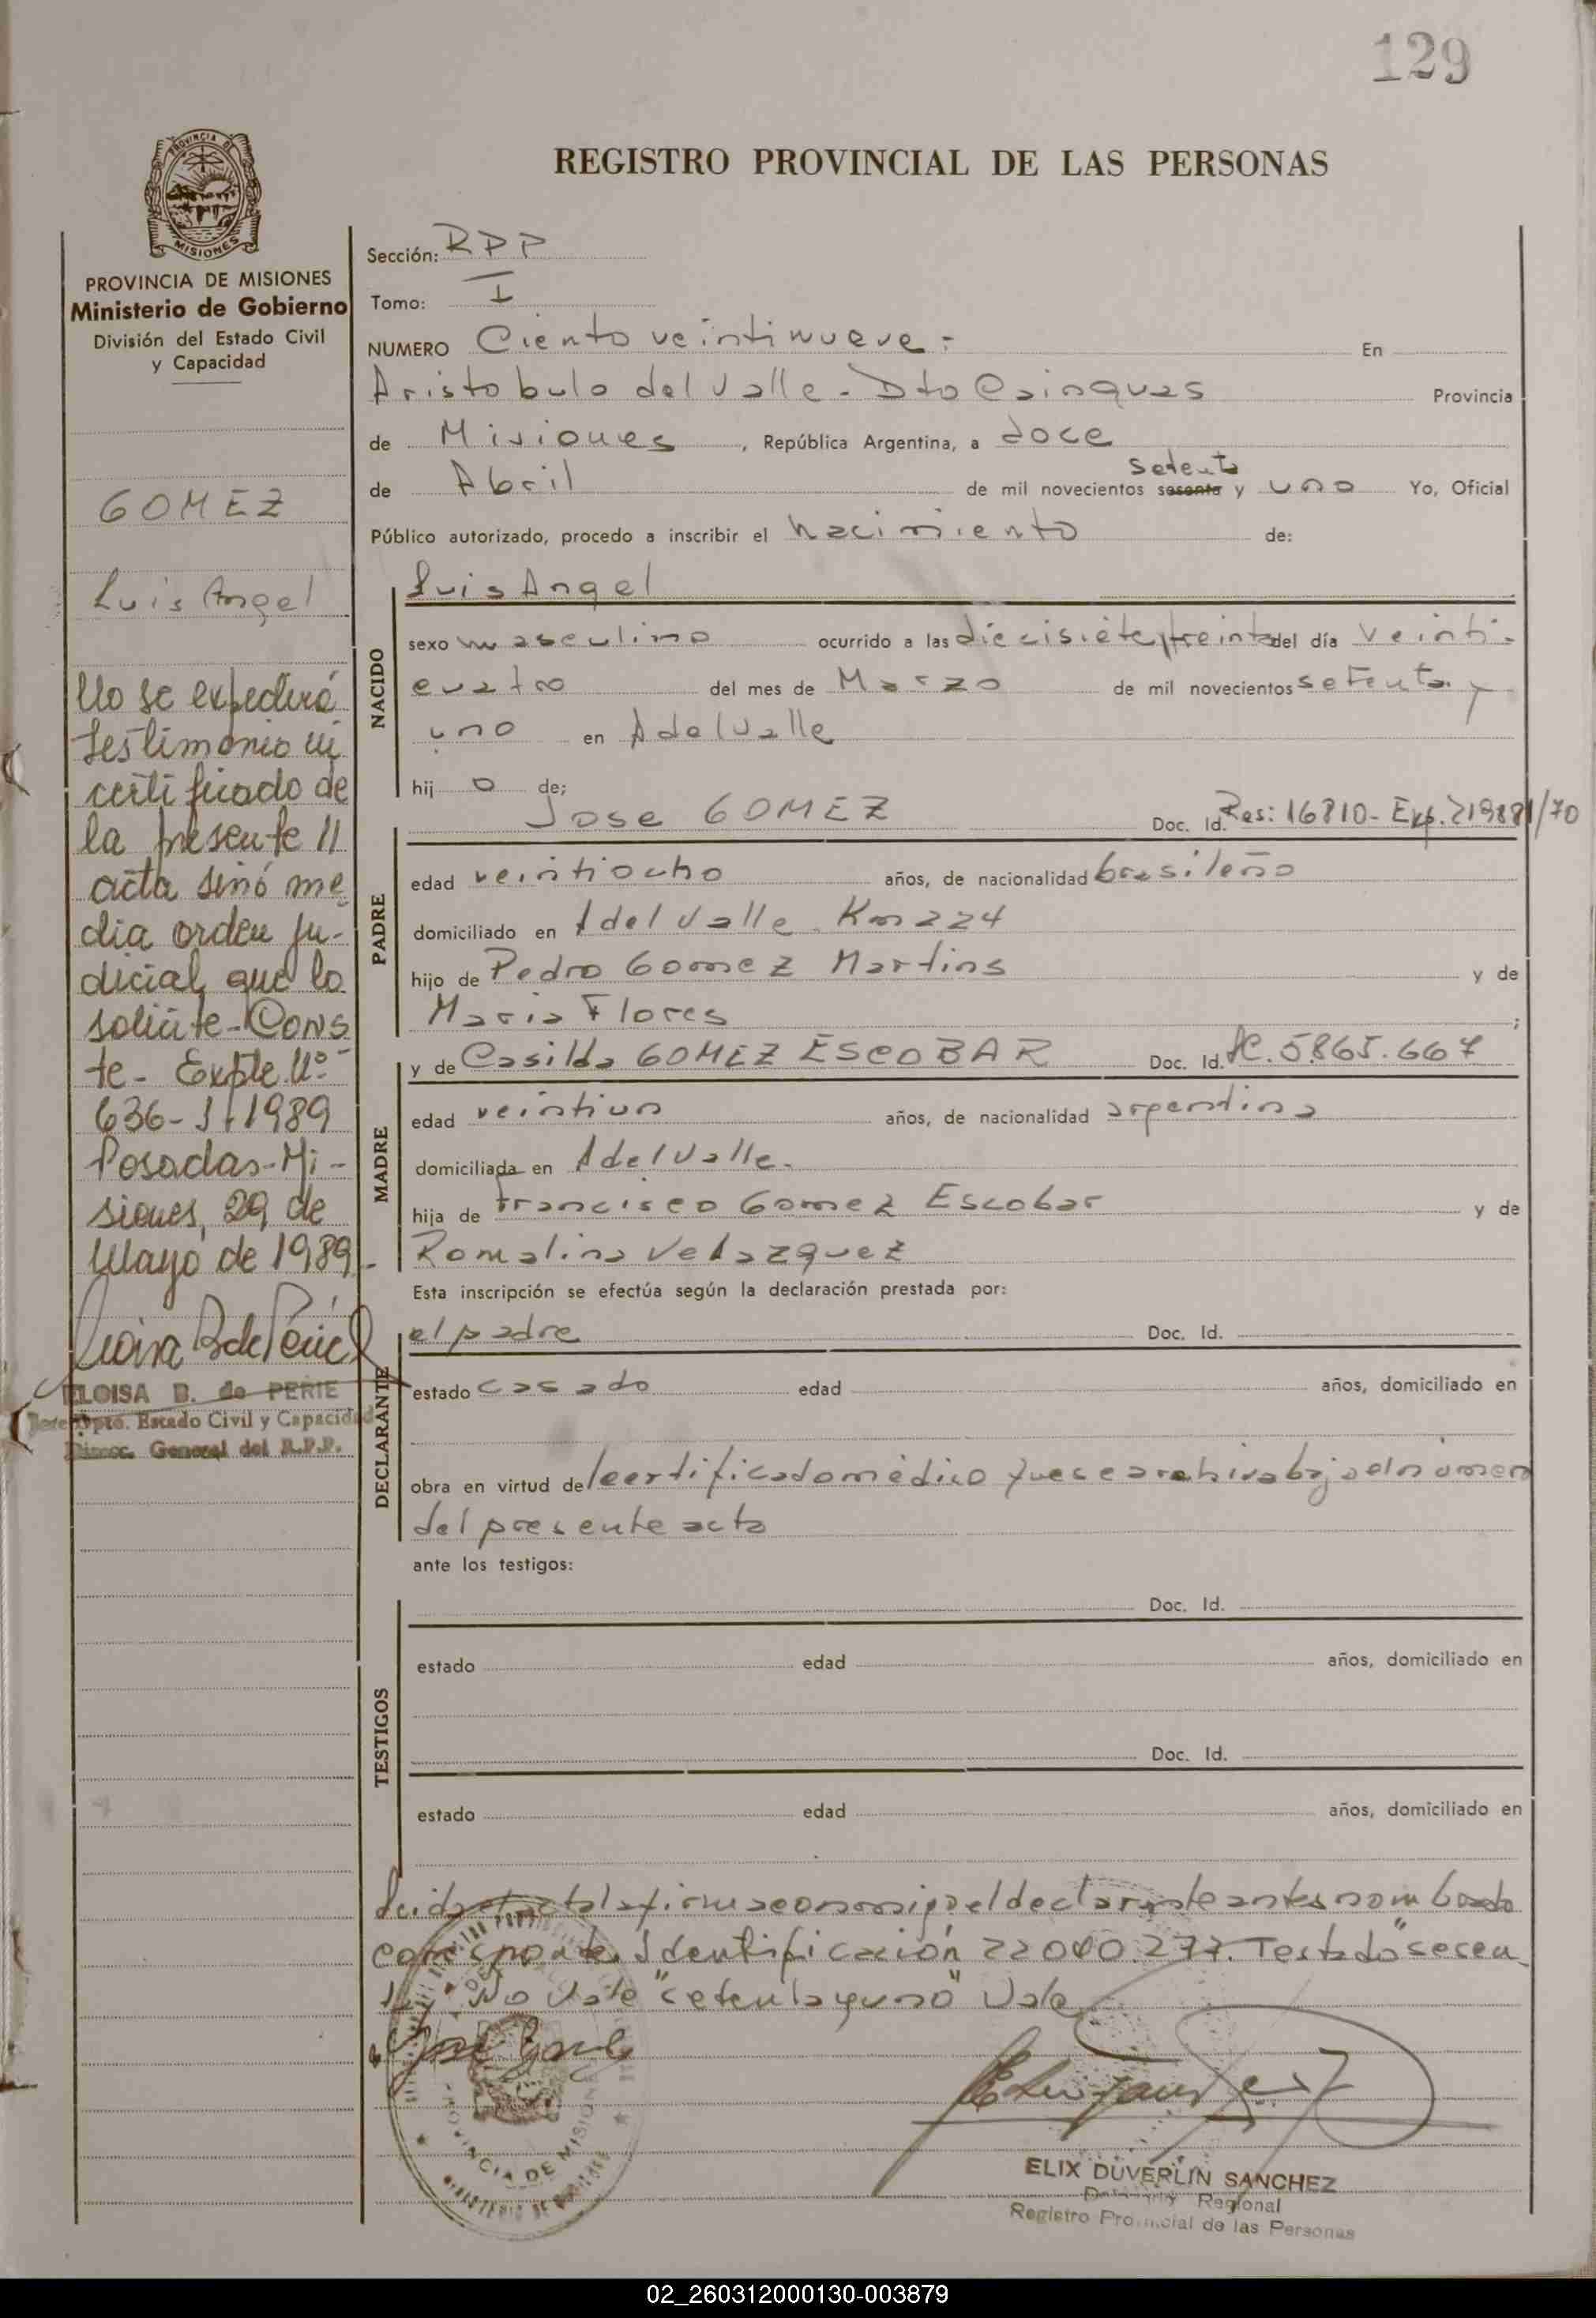 129
PROVINCIA DE
MISIONES
PROVINCIA DE MISIONES
Ministerio de Gobierno
División del Estado Civil
y Capacidad
GOMEZ
Luis Angel
No se expedirá
testimonio ni
certificado de
la presente //
acta sinó me
dia orden ju-
dicial que lo
solicite-Cons
te- Expte Nº
636-J-1989
Posadas-Mi-
siones, 29 de
Mayo de 1989.-
ELOISA B. de PERIE
Jefe Dpto. Estado Civil y Capacidad
Direcc. General del R.P.P.
REGISTRO PROVINCIAL DE LAS PERSONAS
Sección: RPP
Tomo: I
NUMERO Ciento veintinueve.- En
Aristobulo del Valle - Dto Cainguas Provincia
de Misiones, República Argentina, a doce
setenta
de Abril de mil novecientos sesenta y uno Yo, Oficial
Público autorizado, procedo a inscribir el nacimiento de:
NACIDO
Luis Angel
sexo masculino ocurrido a las diecisiete, treinta del día veinti-
cuatro del mes de Marzo de mil novecientos setenta y
uno en A del Valle
hij o de;
PADRE
Jose GOMEZ Doc. Id. Res: 16810- Exp. 219881/70
edad veintiocho años, de nacionalidad brasileño
domiciliado en A del Valle. Km 224
hijo de Pedro Gomez Martins y de
Maria Flores ;
MADRE
y de Casilda GOMEZ ESCOBAR Doc. Id. LC. 5.865.667
edad veintiun años, de nacionalidad argentina
domiciliada en A del Valle.
hija de Francisco Gomez Escobar y de
Romalina Velazquez
Esta inscripción se efectúa según la declaración prestada por:
DECLARANTE
el padre Doc. Id.
estado casado edad años, domiciliado en
obra en virtud de l certificado médico que se archiva bajo el número
del presente acta
ante los testigos:
TESTIGOS
Doc. Id.
estado edad años, domiciliado en
Doc. Id.
estado edad años, domiciliado en
Leida el acta la firma conmigo el declarante antes nombrado
corresponde Identificación 22040.277. Testado "sesen
ta" No Vale "setenta y uno" Vale
PROVINCIA DE MISIONES
ELIX DUVERLIN SANCHEZ
Regional
Registro Provincial de las Personas
02_260312000130-003879